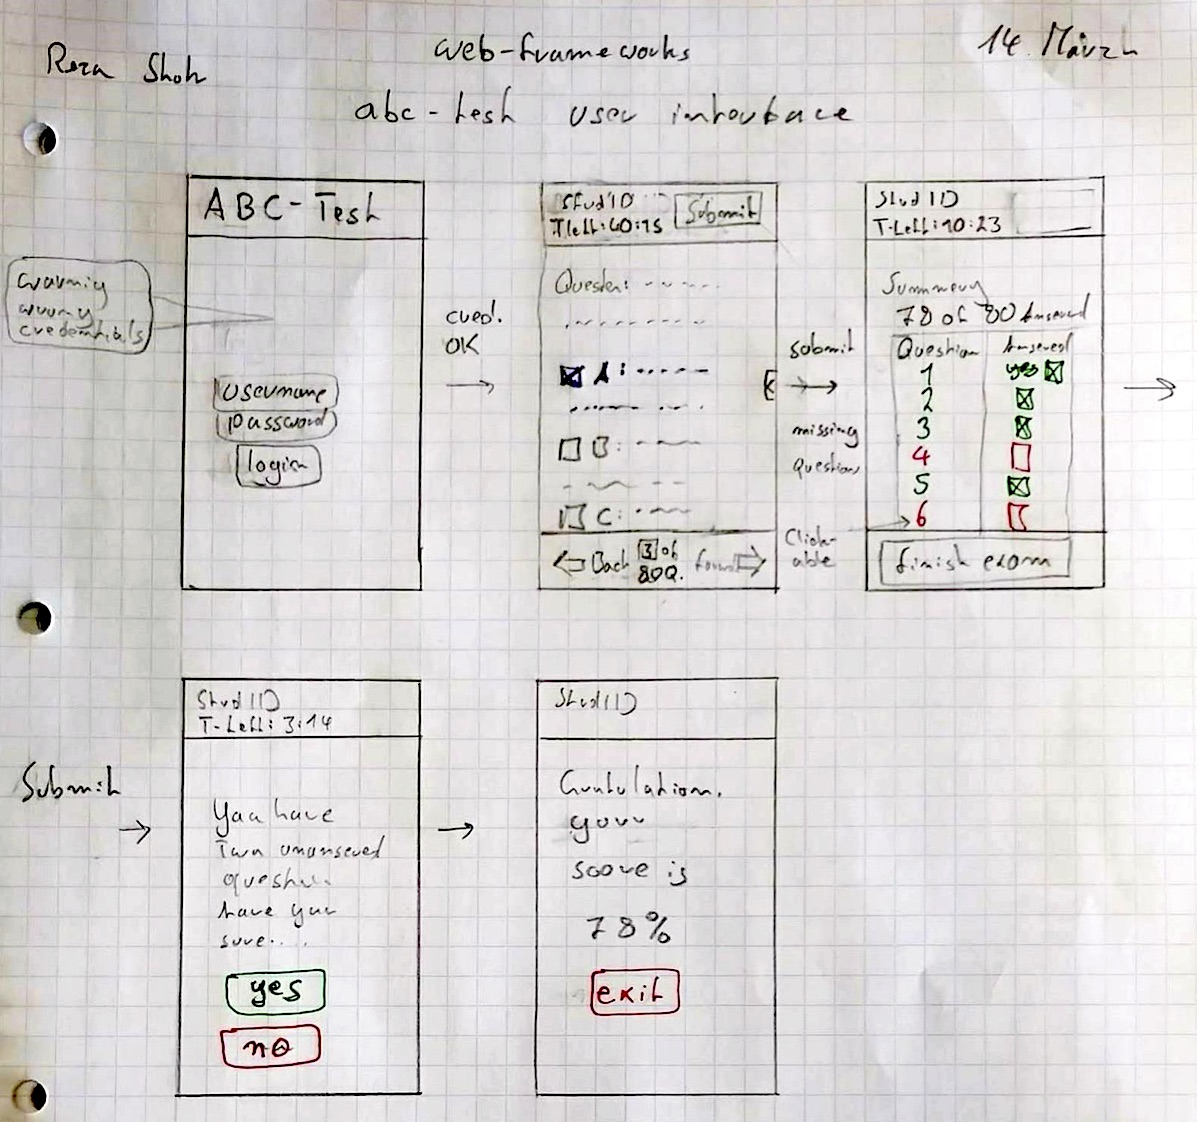 Reza Shoh
web-frameworks
14. März
abc-test user interface
ABC-Test
warning
wrong
credentials
username
password
login
cred.
OK
StudID
T left: 60:15
Submit
Question:
A:
B:
C:
Back
3 of
80Q.
forward
submit
missing
question
Click-
able
StudID
T-Left: 10:23
Summery
78 of 80 Answered
Question Answered
1 yes
2
3
4
5
6
finish exam
Submit
StudID
T-Left: 3:14
You have
Two unanswered
question
have you
sure....
yes
no
StudID
your
score is
78%
exit